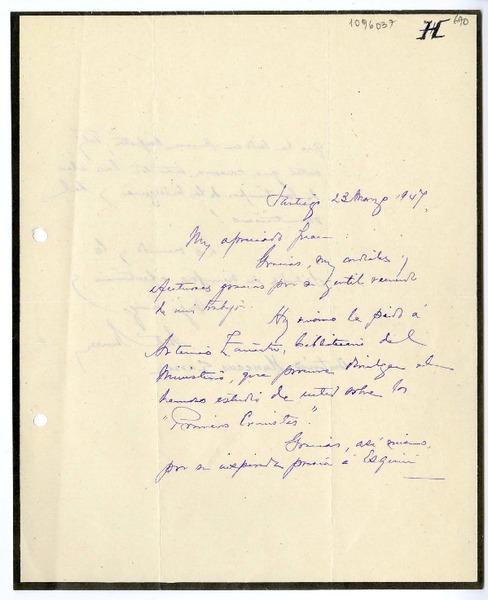 1096037
H 690
Santiago 23 Marzo 1947.
My apreciado Juan:
Gracias, muy cordiales y
efectuosas gracias por su gentil
de mis trabajos.
Hoy mismo le pido á
Artemio bibliotecario del
Ministerio, que procure divulgar el
hermoso estudio de usted sobre los
"Primeros Cronistas".
Gracias, así mismo,
por su inspirada poesía á